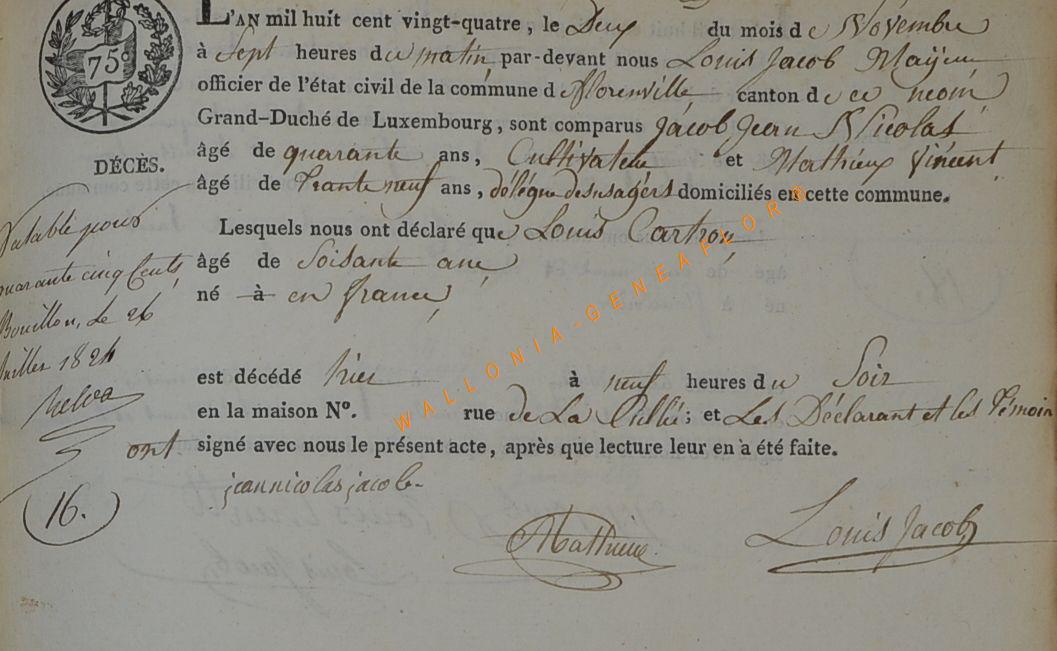 L'AN mil huit cent vingt-quatre, le Deux du mois de Novembre
75c
à Sept heures du matin, par-devant nous Louis Jacob Mayeur
officier de l'état civil de la commune de florenville, canton de ce nom,
Grand-Duché de Luxembourg, sont comparus Jacob Jean Nicolas
âgé de quarante ans, Cultivateur et Mathieux Vincent
DÉCÈS.
âgé de Trante neuf ans, délégue des usagérs domiciliés en cette commune.
Lesquels nous ont déclaré que Louis Cartron,
âgé de Soisante ans,
né à en france,
Valable pour
quarante cinq Cents,
Bouillon, Le 26
Juillet 1824
est décédé hier à neuf heures du Soir
en la maison N°. rue de La; et Les Déclarant et les Témoin
ont signé avec nous le présent acte, après que lecture leur en a été faite.
16.
jean nicolas jacob
Mathieux
Louis Jacob
WALLONIA-GENEAFLORE